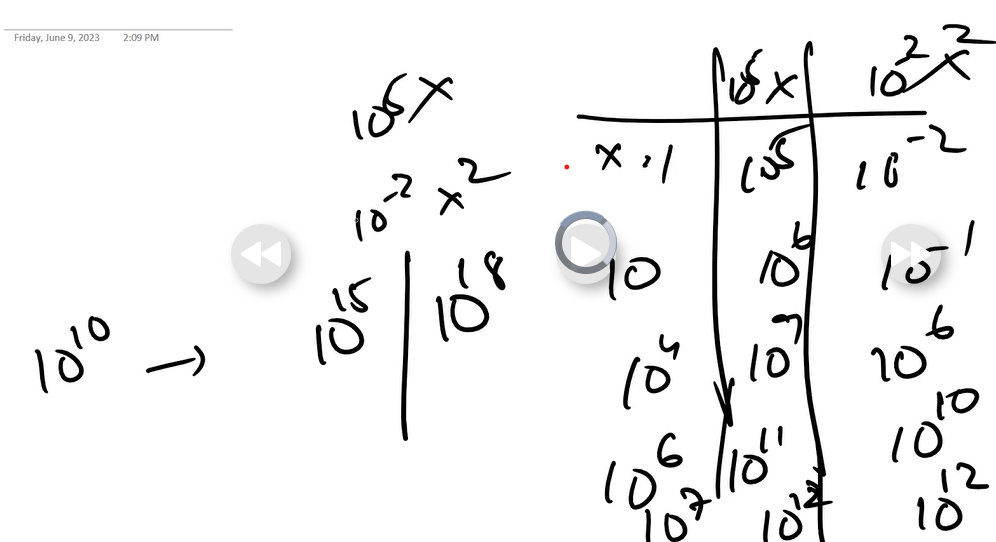 Friday, June 9, 2023 2:09 PM
10^5 x
10^-2 x^2
10^10 → 10^15 | 10^18
10^5 x | 10^2 x^2
x . 1 | 10^5 | 10^-2
10 | 10^6 | 10^-1
10^4 | 10^7 | 10^6
10^6 | 10^11 | 10^10
10^7 | 10^12 | 10^12